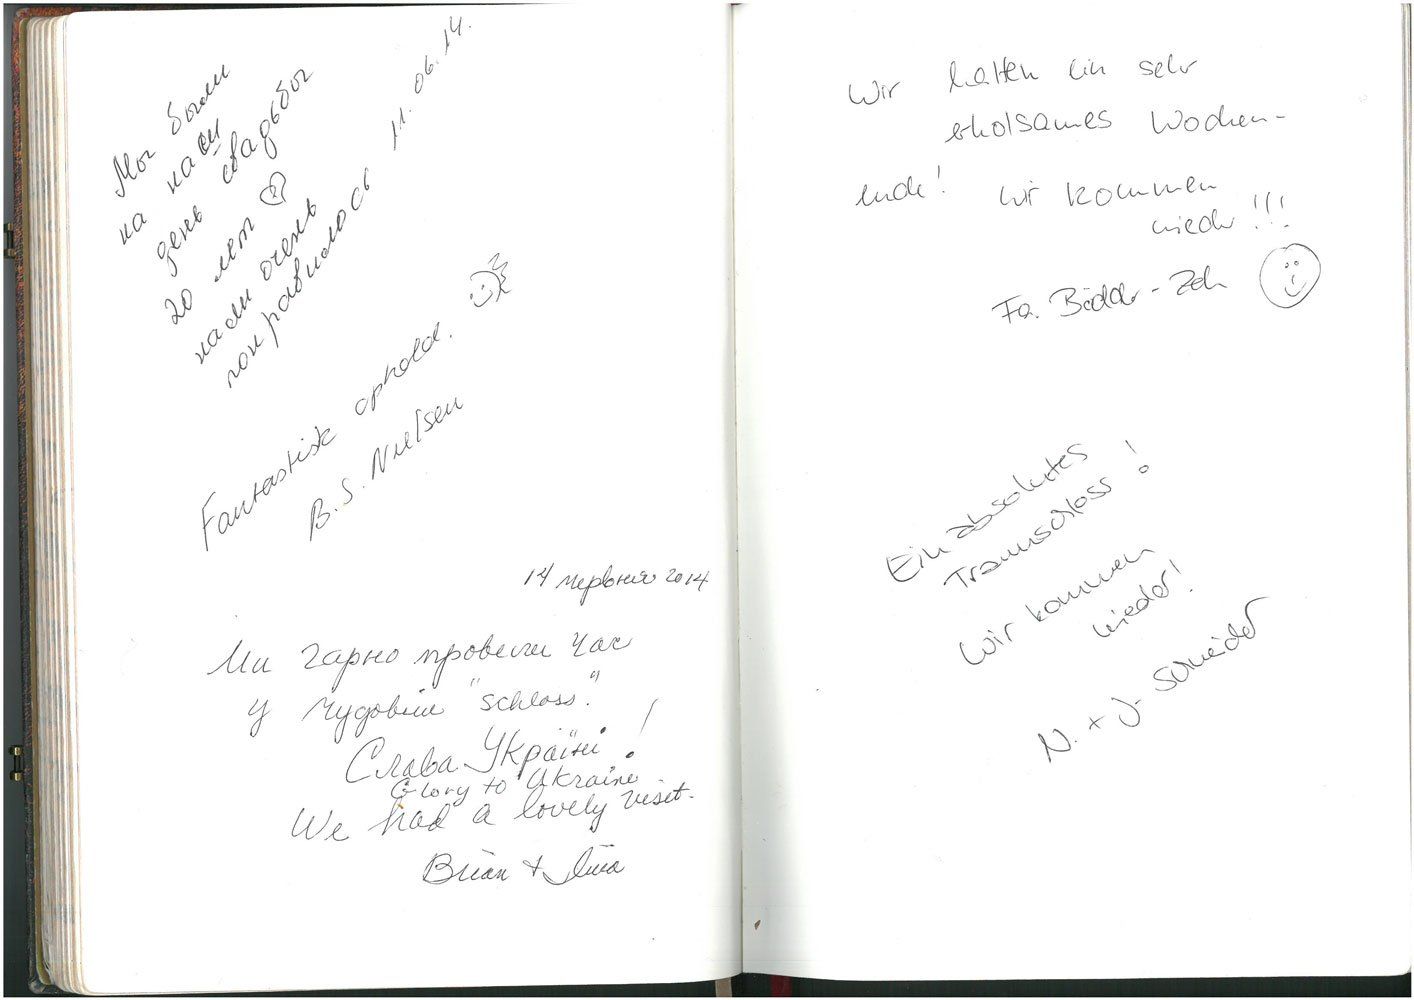 Мы были
на наш
день свадьбы
20 лет
нам очень
понравилось 11.06.14.
Fantastisk ophold.
B.S. Nielsen
14 червня 2014
Ми гарно провели час
у чудовім "schloss".
Слава Україні!
Glory to Ukraine
We had a lovely visit.
Brian +
Wir hatten ein sehr
erholsames Wochen-
ende! Wir kommen
wieder!!!
Fa.
Ein absolutes
Traumschloss!
Wir kommen
wieder!
N. + J. Schneider